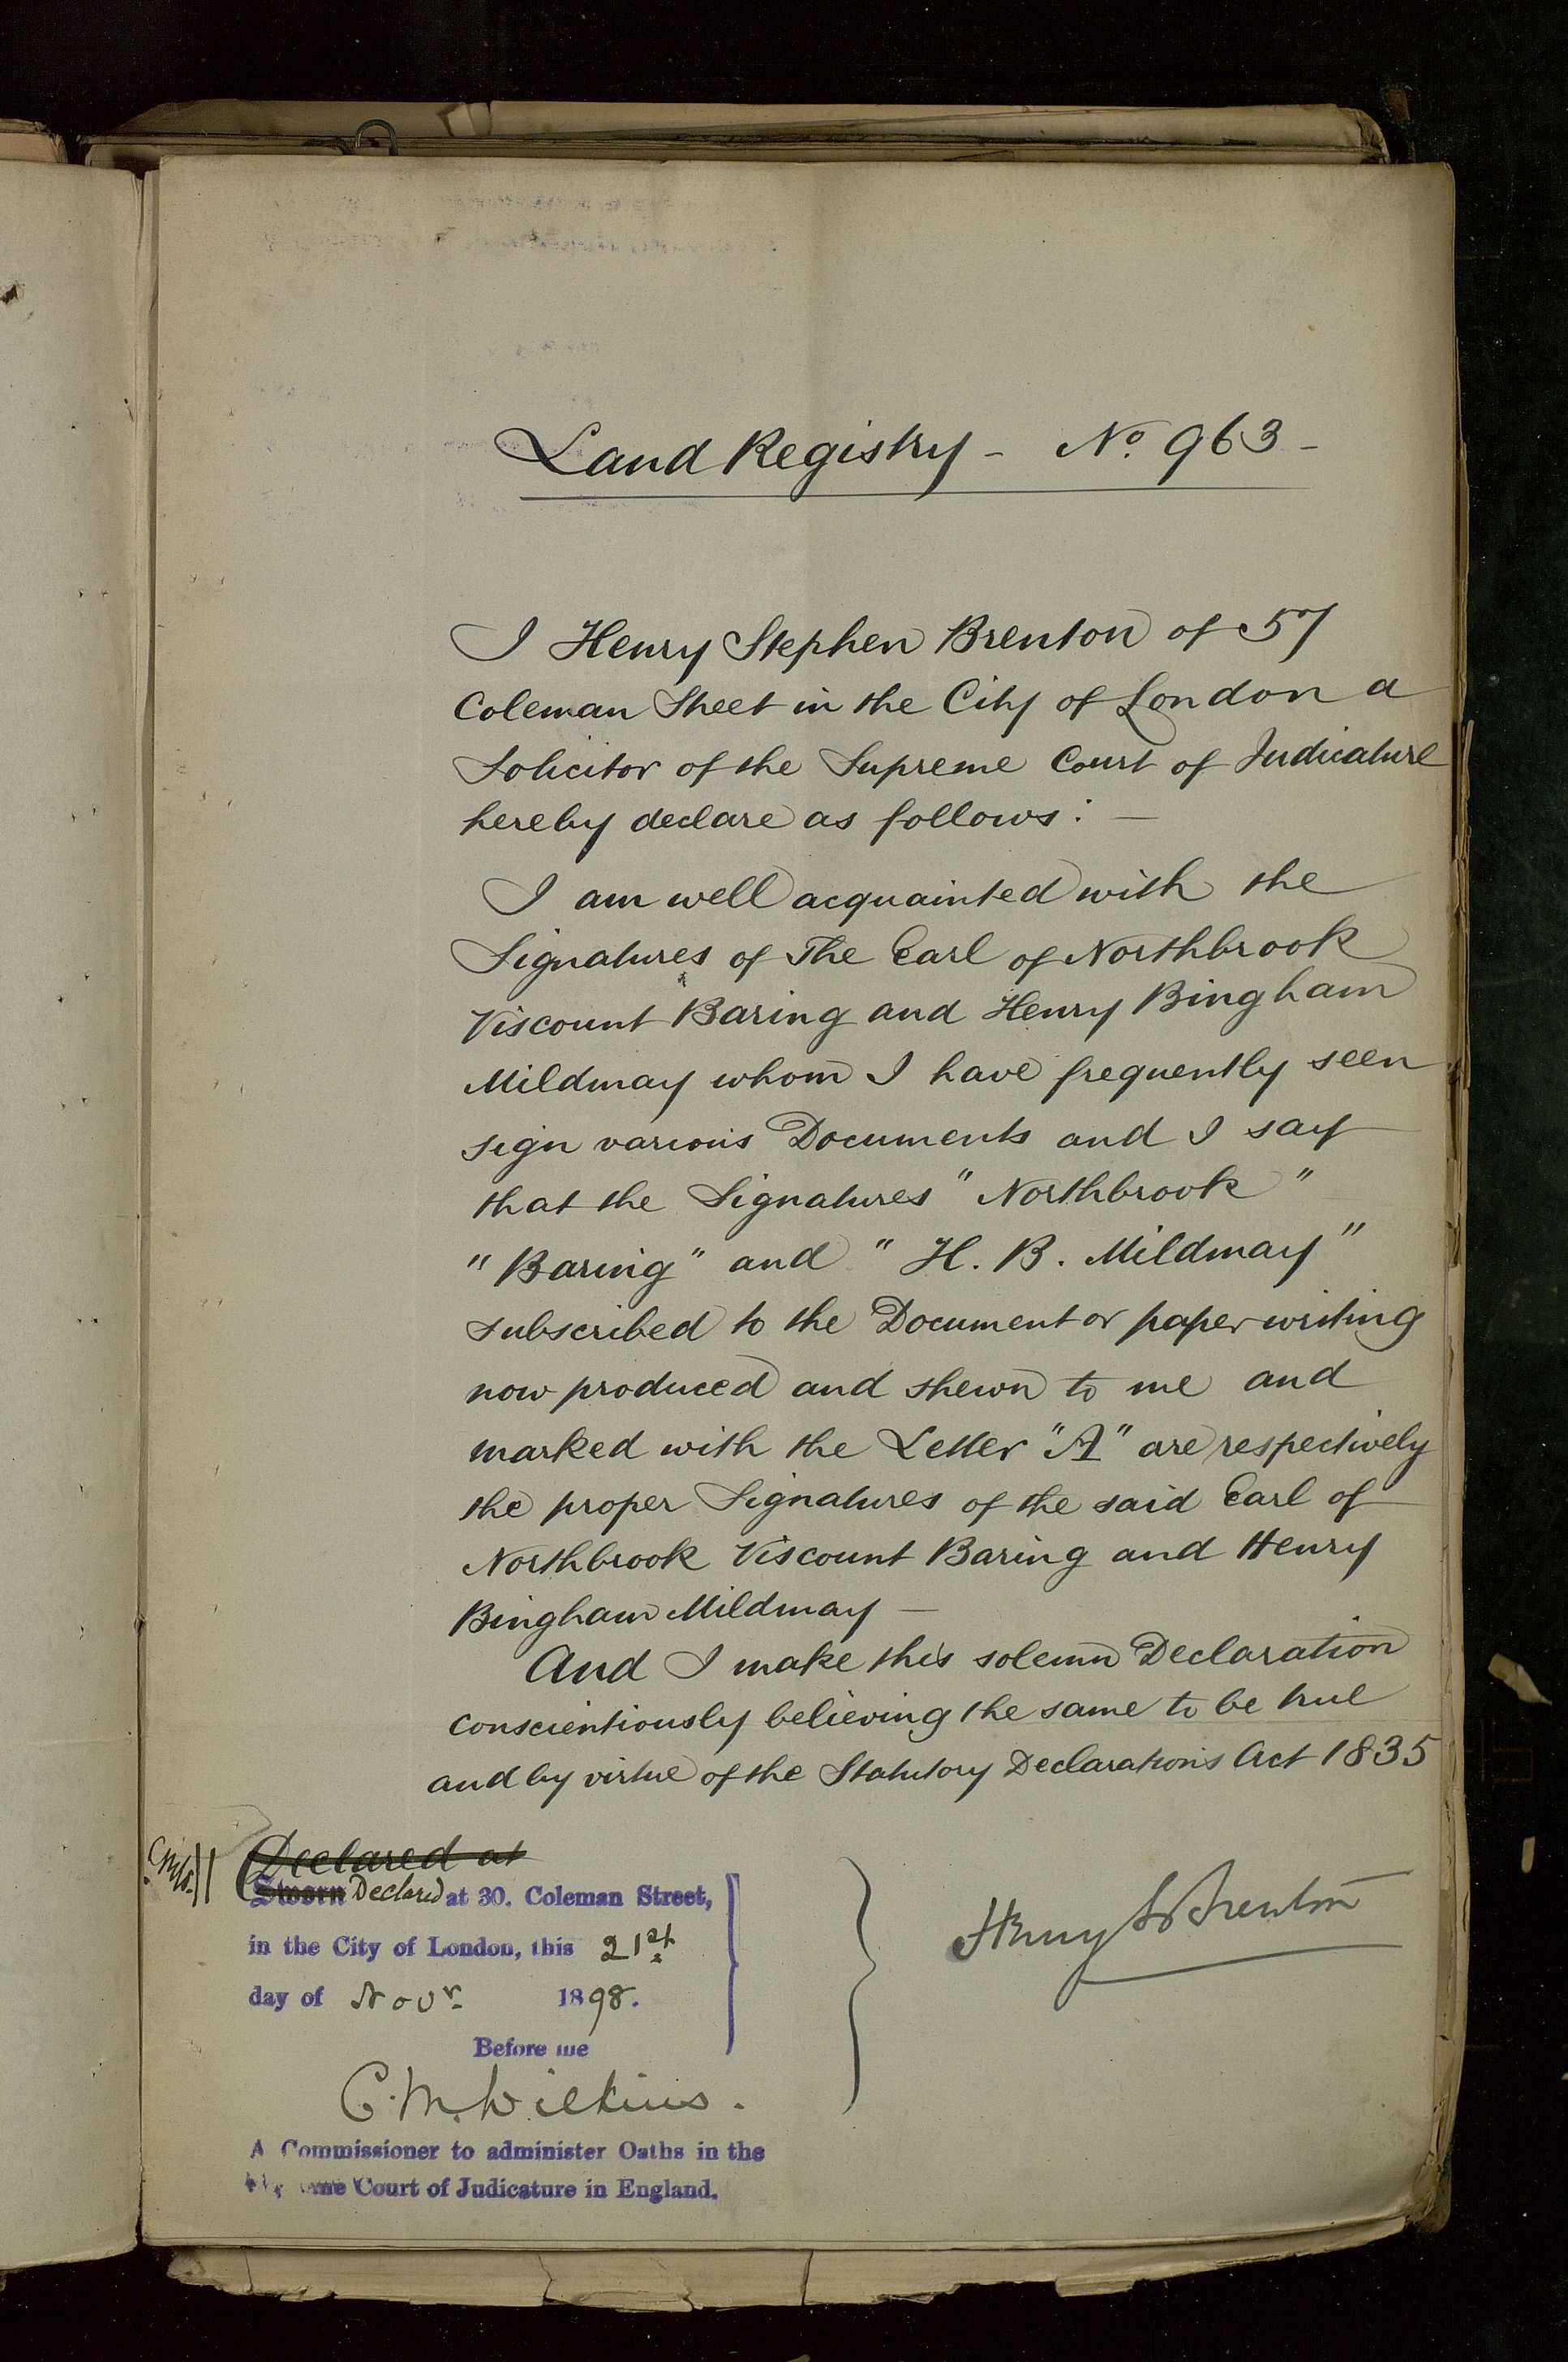 Land Registry - No. 963 -
I Henry Stephen Brenton of 57
Coleman Street in the City of London a
Solicitor of the Supreme Court of Judicature
hereby declare as follows: —
I am well acquainted with the
Signatures of The Earl of Northbrook
Viscount Baring and Henry Bingham
Mildmay whom I have frequently seen
sign various Documents and I say
that the Signatures "Northbrook"
"Baring" and "H. B. Mildmay"
subscribed to the Document or paper writing
now produced and shewn to me and
marked with the Letter "A" are respectively
the proper Signatures of the said Earl of
Northbrook Viscount Baring and Henry
Bingham Mildmay —
And I make this solemn Declaration
conscientiously believing the same to be true
and by virtue of the Statutory Declarations Act 1835
Declared at
Sworn Declared at 30. Coleman Street,
in the City of London, this 21st
day of Novr. 1898.
Before me
C. M. Wilkins.
A Commissioner to administer Oaths in the
Court of Judicature in England.
Henry S Brenton